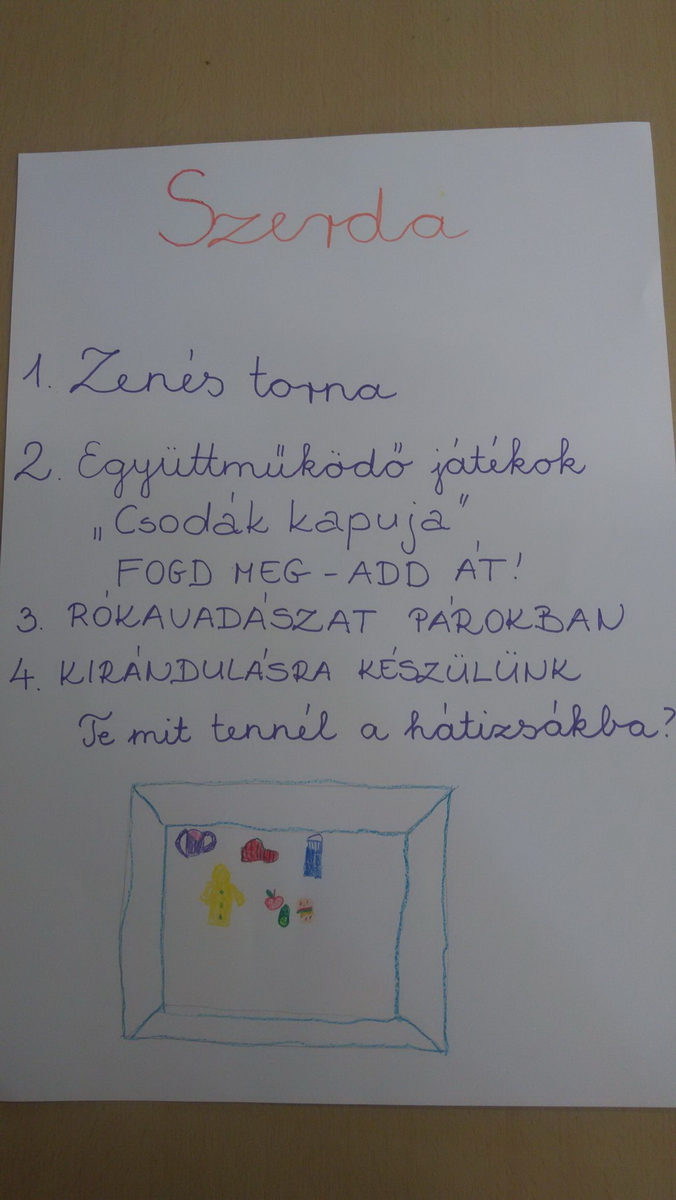 Szerda
1. Zenés torna
2. Együttműködő játékok
„Csodák kapuja”
FOGD MEG - ADD ÁT!
3. RÓKAVADÁSZAT PÁROKBAN
4. KIRÁNDULÁSRA KÉSZÜLÜNK
Te mit tennél a hátizsákba?